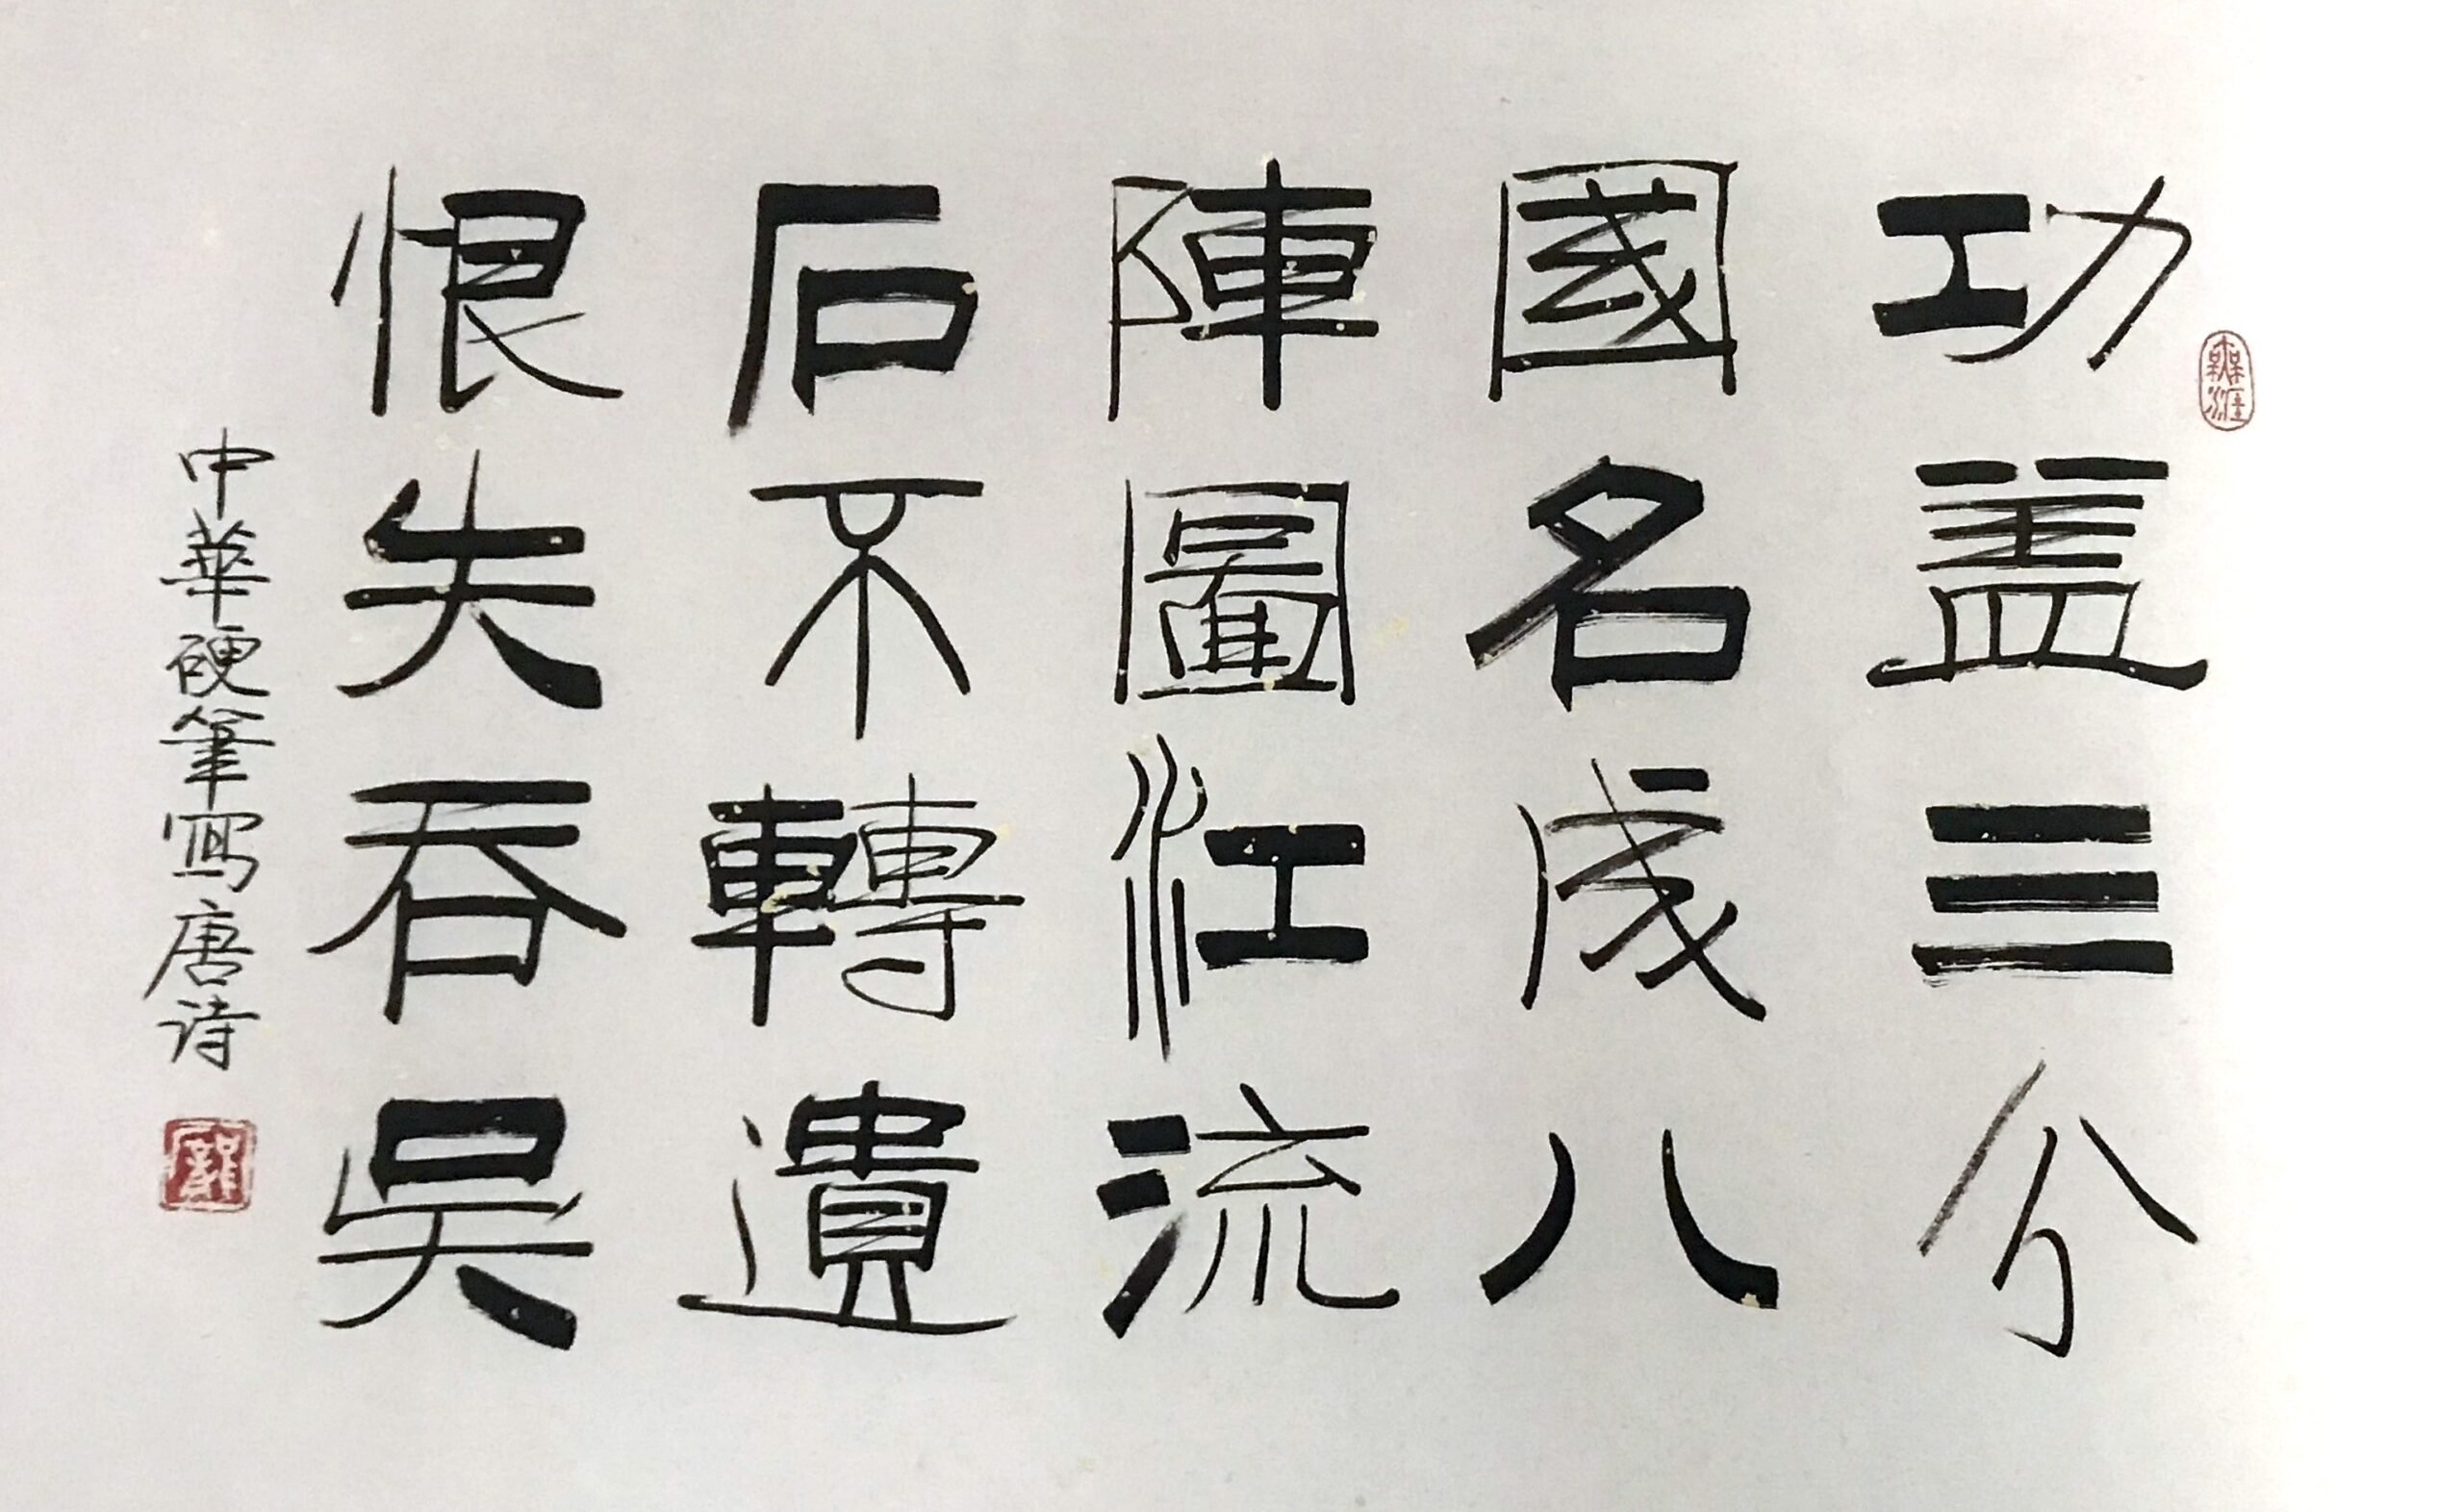 功盖三分
國名成八
陣圖江流
石不轉遺
恨失吞吴
中華硬筆寫唐诗